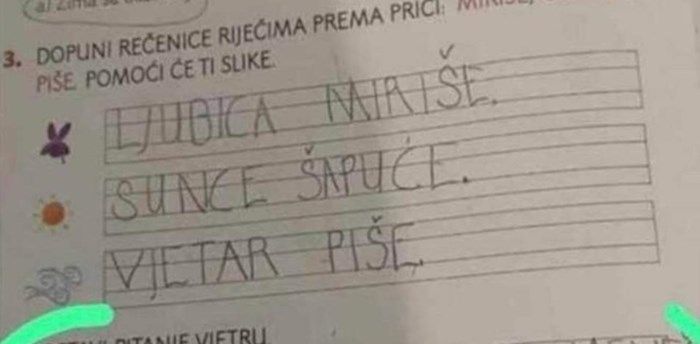 a) Zima
3. DOPUNI REČENICE RIJEČIMA PREMA PRIČI: MIRIŠE,
PIŠE. POMOĆI ĆE TI SLIKE.
LJUBICA MIRIŠE.
SUNCE ŠAPUĆE.
VJETAR PIŠE.
PITANJE VJETRU